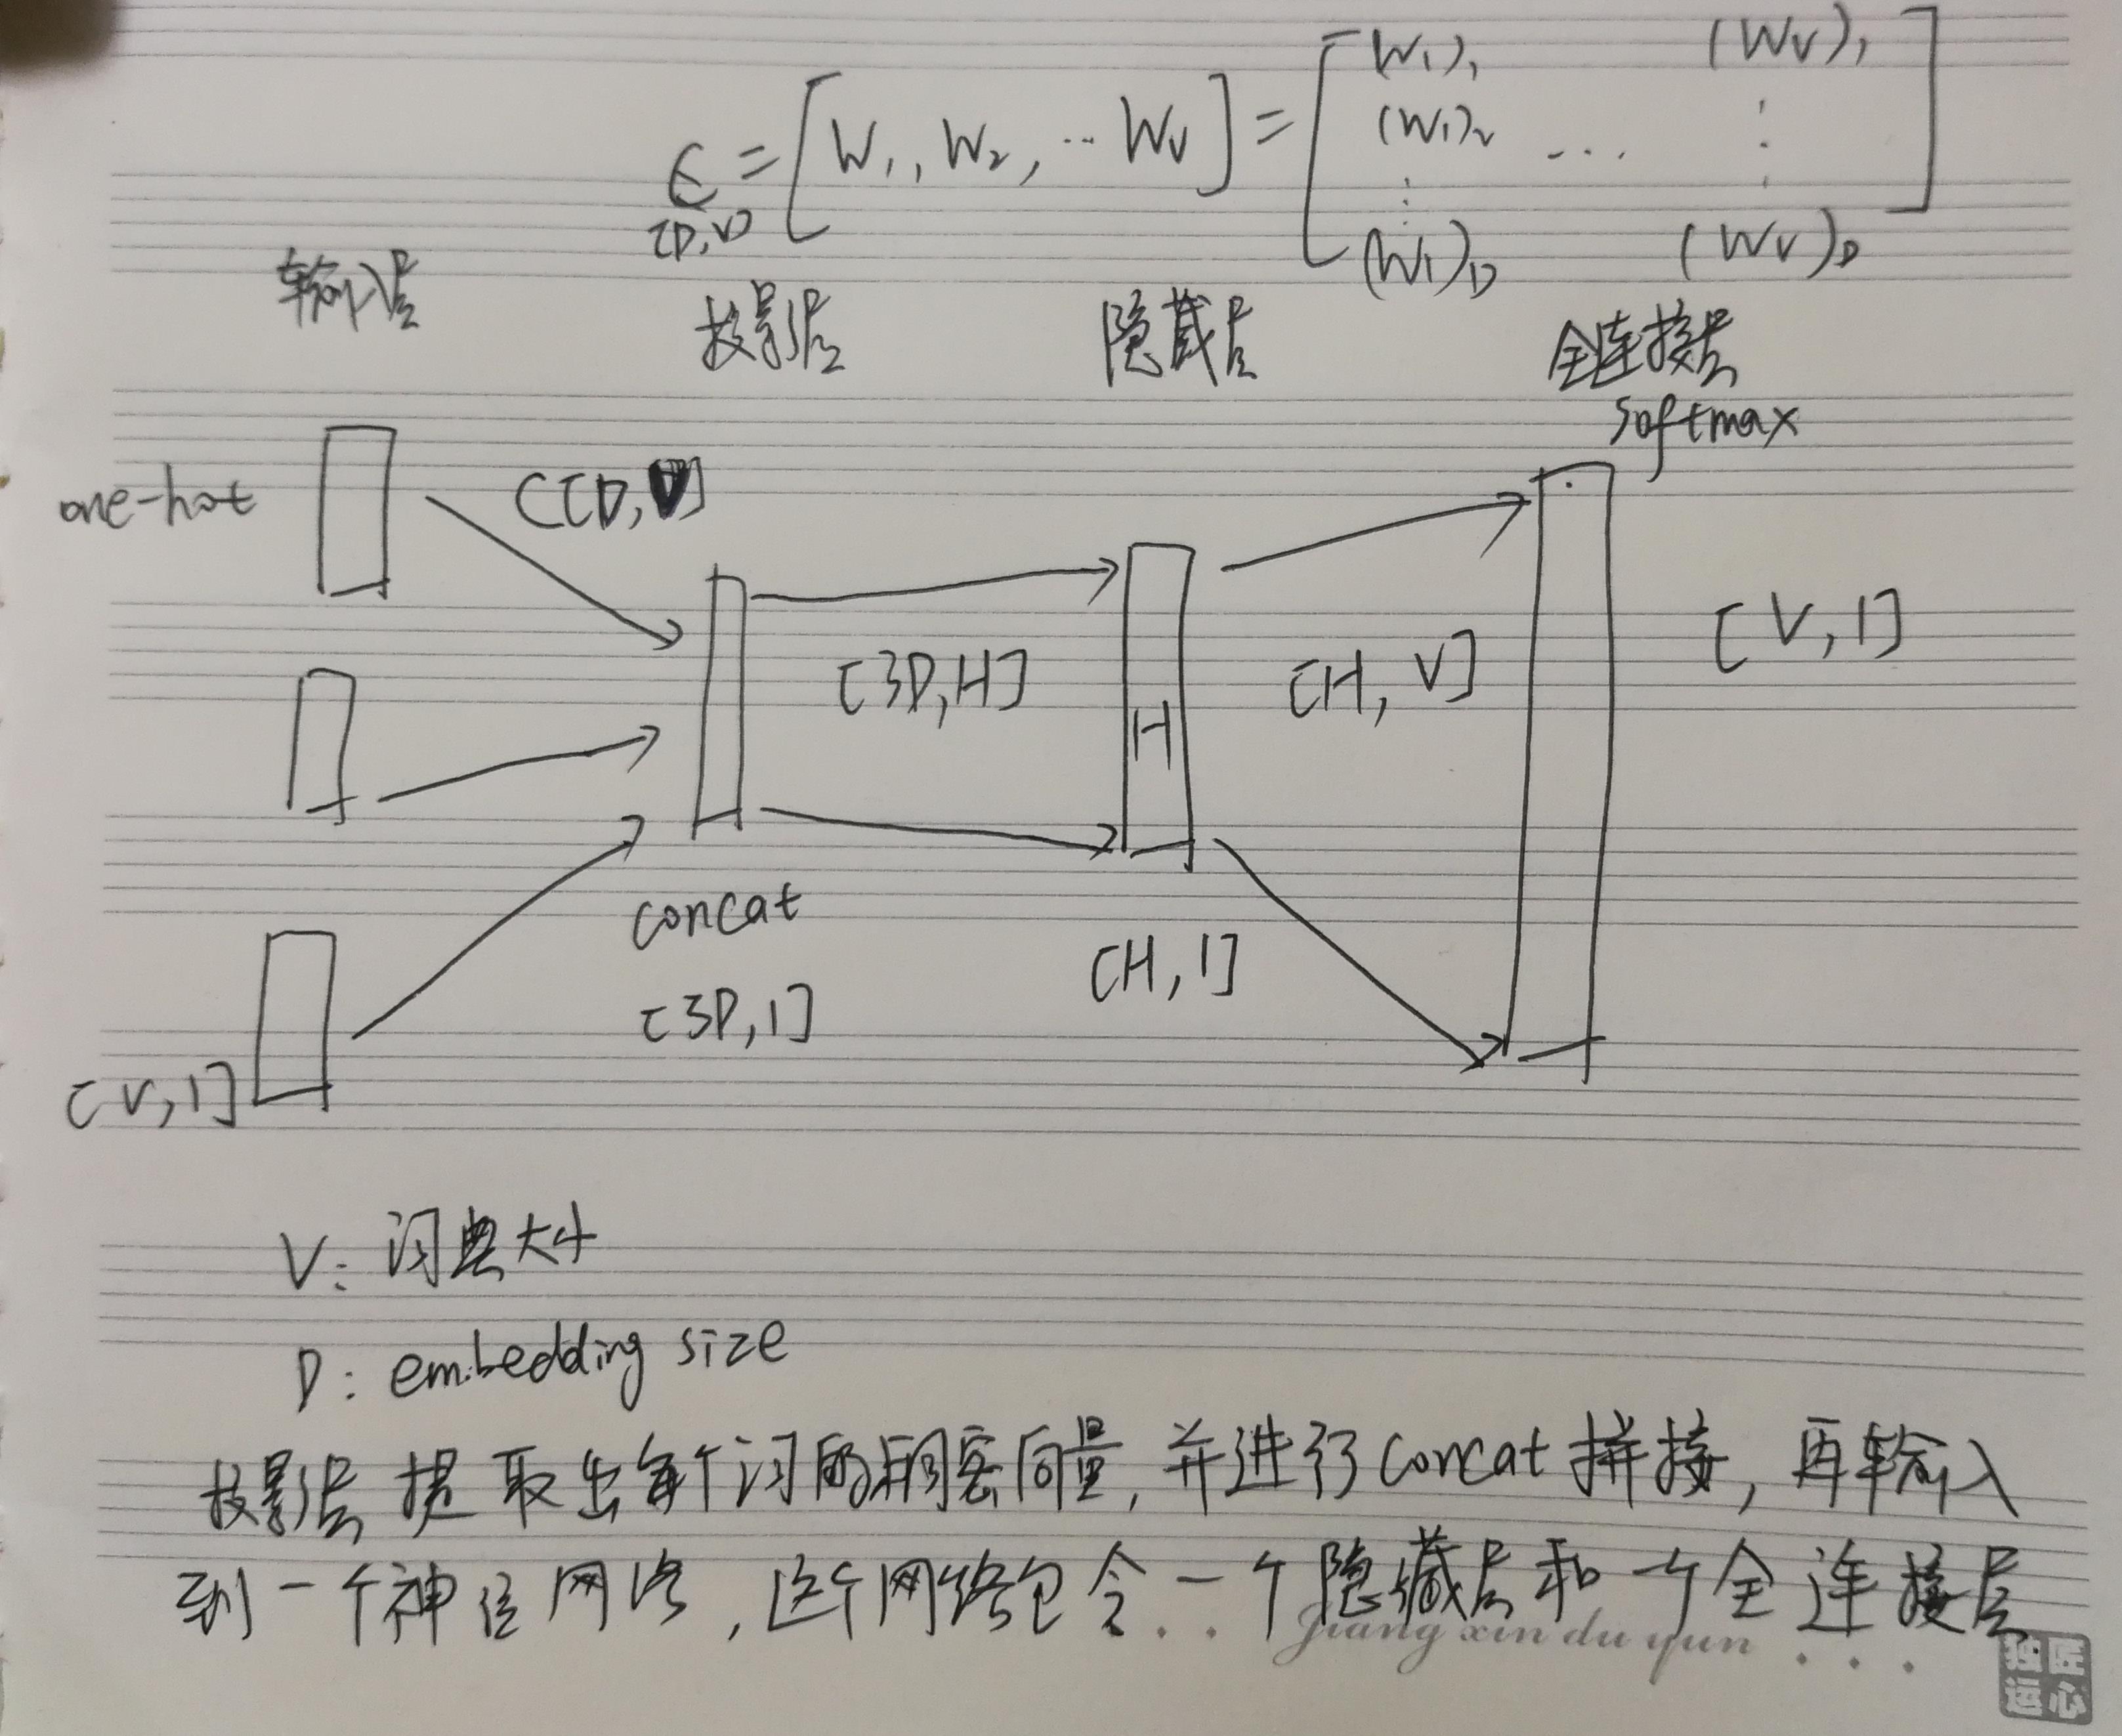 (W1)1 (WV)1
(W1)2 ... ⋮
∈ = [W1, W2, ... WV] =
[D,V]
⋮ ⋮
(W1)D (WV)D
输入层 投影层 隐藏层 全连接层
softmax
one-hot
C[D,V]
[3D,H]
H
[H,V]
[V,1]
concat
[3D,1]
[H,1]
[V,1]
V: 词典大小
D: embedding size
投影层提取出每个词的稠密向量,并进行concat拼接,再输入
到一个神经网络,这个网络包含一个隐藏层和一个全连接层
Jiang xin du yun
独匠
运心